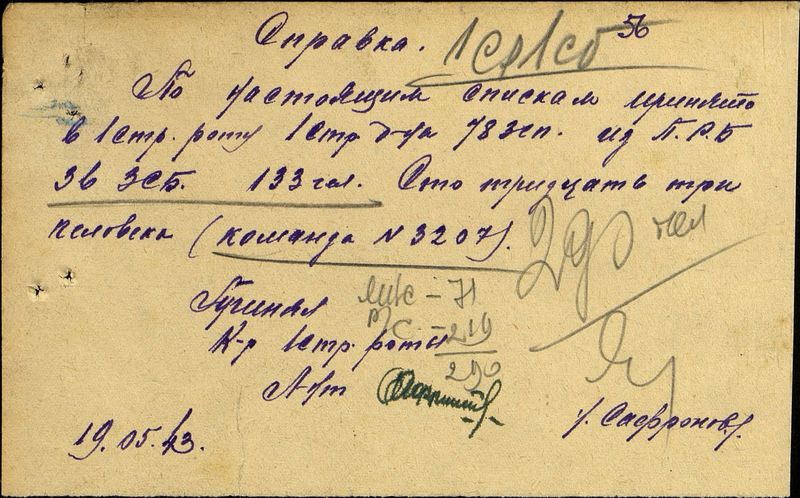 56
Справка. 1ср1сб
По настоящим спискам принято
в 1 стр. роту 1 стр. б-на 783сп. из П.Р.Б
36 ЗСБ. 133 чел. Сто тридцать три
человека (команда N 3207).
290 чел
Принял - 71
К-р 1 стр. роты С. - 219
290
Л-нт
/. Сафронов./
19.05.43.